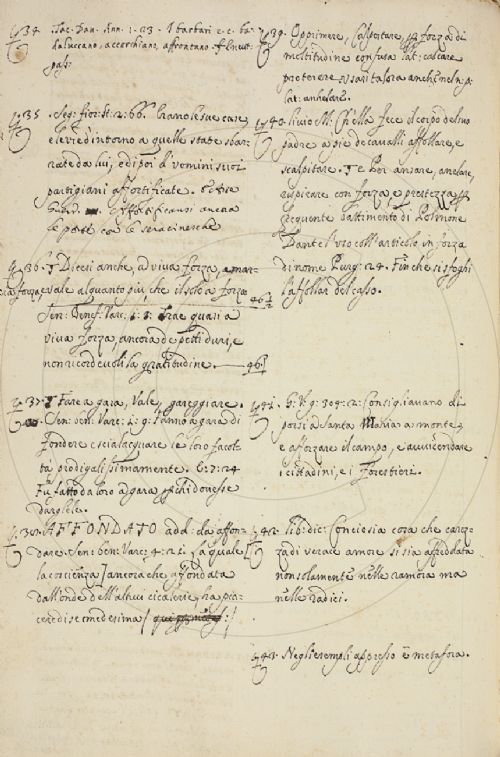 34. Tac. Dav. Ann. 1. 23. I barbari e c. ba-
daluccano, accerchiano, affrontano.
pass.
35. Seg: fior: st: 2: 66. le case
e le vie d'intorno a quelle state sbar-
rate da lui, e dipoi d'uomini suoi
partigiani affortificate.
Affortificansi ancora
le porte con le seracinesche
36. Dicesi anche, a viva forza, e
vale alquanto più che il solo a forza
Sen: Benef: Varc. trae quasi a
viva forza, ancora de petti duri, e
non ricordevoli la gratitudine. 46
37. Fare a gara, Vale, gareggiare.
Sen: ben: Varc: fanno a gara di
fondere e scialacquare le loro facol-
tà prodigalissimamente. E: 7: 24
Fu fatto da loro a gara, chi dovesse
darglele.
38. AFFONDATO add: da affon-
dare. Sen: ben: Varc: 4: la quale
la coscienza ancora che affondata
dall'onde dell'altrui cicalerie, ha pia-
cere di se medesima
39. Opprimere, Calpestare, forza di
moltitudine confusa lat: calcare
proterere usasi talora anche
lat: anhelare.
40. livio M: Ch'ella fece il corpo del suo
padre a pie de cavalli affollare, e
scalpitare. E Per ansare, anelare,
respirare con forza, e prestezza
frequente battimento di Polmone
Dante l'uso coll'articolo in forza
di nome Purg: 24. Fin che si sfoghi
l'affollar del casso.
41. G: V: 9: 304: 2: Consigliavano di
porsi a Santa Maria a monte
e afforzare il campo, e avvicendare
i cittadini, e i Forestieri.
42. lib: dic: Conciesia cosa che carez-
za di verace amore si sia affreddata
non solamente nelle ramora ma
nelle radici.
43. Negli esempli appresso è metafora.